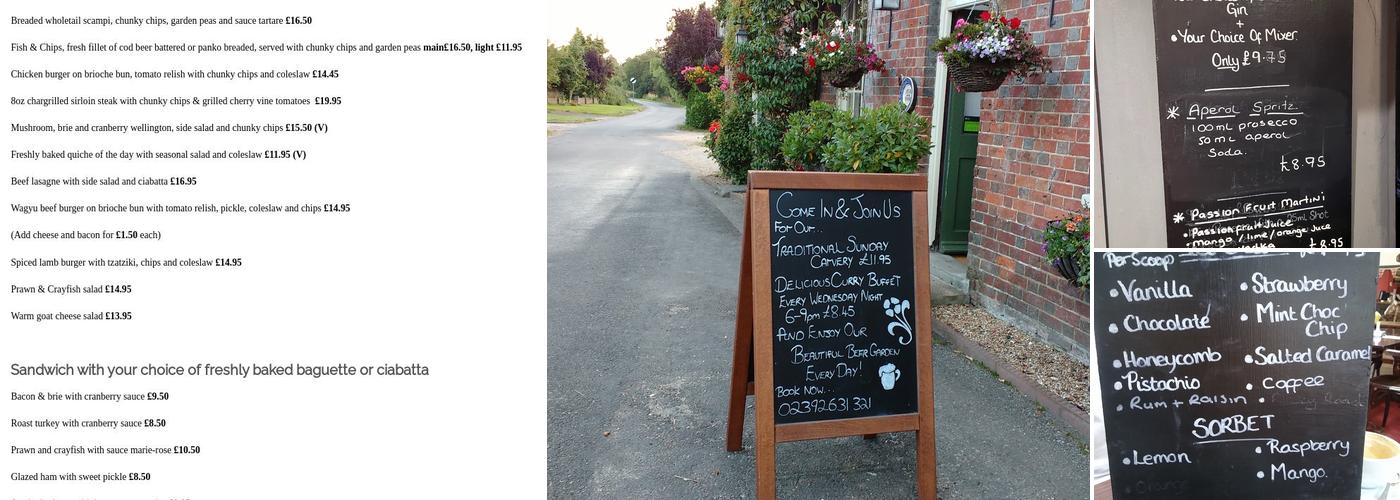 Breaded wholetail scampi, chunky chips, garden peas and sauce tartare £16.50
Fish & Chips, fresh fillet of cod beer battered or panko breaded, served with chunky chips and garden peas main£16.50, light £11.95
Chicken burger on brioche bun, tomato relish with chunky chips and coleslaw £14.45
8oz chargrilled sirloin steak with chunky chips & grilled cherry vine tomatoes £19.95
Mushroom, brie and cranberry wellington, side salad and chunky chips £15.50 (V)
Freshly baked quiche of the day with seasonal salad and coleslaw £11.95 (V)
Beef lasagne with side salad and ciabatta £16.95
Wagyu beef burger on brioche bun with tomato relish, pickle, coleslaw and chips £14.95
(Add cheese and bacon for £1.50 each)
Spiced lamb burger with tzatziki, chips and coleslaw £14.95
Prawn & Crayfish salad £14.95
Warm goat cheese salad £13.95
Sandwich with your choice of freshly baked baguette or ciabatta
Bacon & brie with cranberry sauce £9.50
Roast turkey with cranberry sauce £8.50
Prawn and crayfish with sauce marie-rose £10.50
Glazed ham with sweet pickle £8.50
COME IN & JOIN US
FOR OUR...
TRADITIONAL SUNDAY
CARVERY £11.95
DELICIOUS CURRY BUFFET
EVERY WEDNESDAY NIGHT
6-9pm £8.45
AND ENJOY OUR
BEAUTIFUL BEER GARDEN
EVERY DAY!
BOOK NOW...
02392631321
Gin
+
•Your Choice Of Mixer
Only £9.75
* Aperol Spritz
100mL prosecco
50mL aperol
Soda.
£8.95
* Passion Fruit Martini
•Passion fruit Juice
•mango / lime / orange Juce
£8.95
Per Scoop
•Vanilla
•Strawberry
•Chocolate
•Mint Choc
Chip
•Honeycomb
•Salted Caramel
•Pistachio
•Coffee
•Rum + Raisin
SORBET
•Lemon
•Raspberry
•Mango.